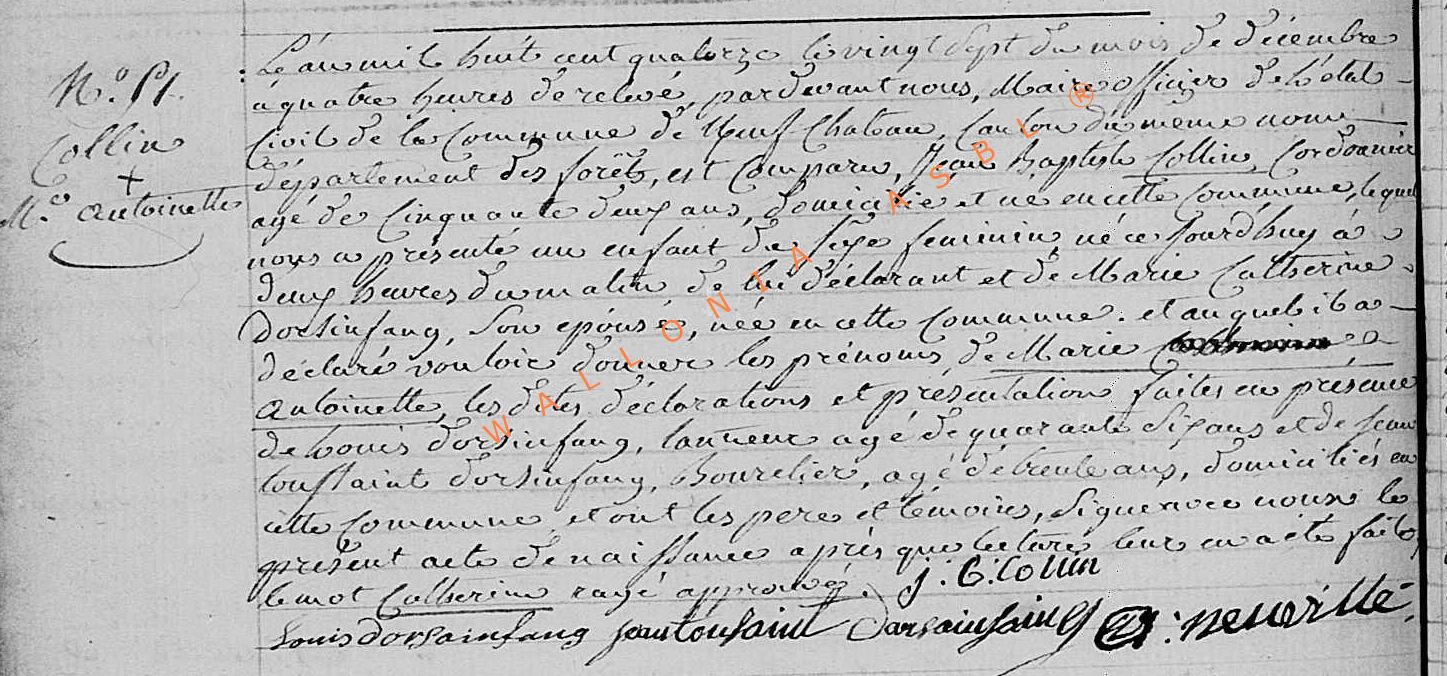 N.º 51.
Collin
+
M.e antoinette
L'an mil huit cent quatorze le vingt sept du mois de décembre
à quatre heures de relevé, pardevant nous, Maire officier de l'état
Civil de la Commune de Neuf-Chateau, Canton du même nom
département des forêts, est comparu, Jean Baptiste Collin, Cordonnier
agé de Cinquante deux ans, domicilié et né en cette commune, lequel
nous a présenté un enfant de sexe feminin, né ce jourd'huy à
deux heures du matin de lui déclarant et de Marie Catherine
Dorsinfang, son epouse, née en cette Commune. et auquel il a
déclaré vouloir donner les prénoms de Marie
antoinette, les dites déclarations et présentation faites en présence
de Louis dorsinfang, tanneur agé de quarante six ans et de jean
toussaint dorsinfang, Bourelier, agé de trente ans, domiciliés en
cette Commune et ont les pere et témoins, signé avec nous le
présent acte de naissance après que lecture leur en a été faite,
le mot Catherine rayé approuvé. j. b. Collin
Louis dorsainfang jean tousaint Darsainfaing : neuville.
WALLONIA ASBL ®